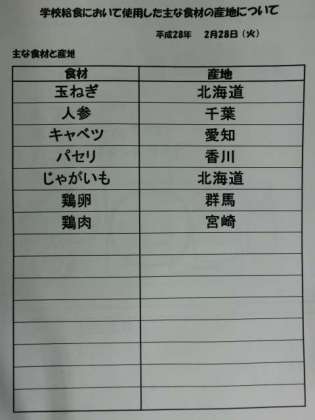 学校給食において使用した主な食材の産地について
平成28年 2月28日（火）
主な食材と産地
食材 産地
玉ねぎ 北海道
人参 千葉
キャベツ 愛知
パセリ 香川
じゃがいも 北海道
鶏卵 群馬
鶏肉 宮崎